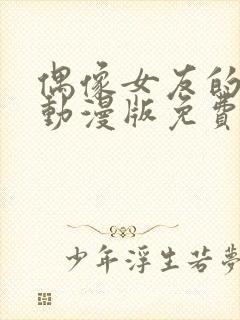 偶像女友的
動漫版免費
少年浮生若夢